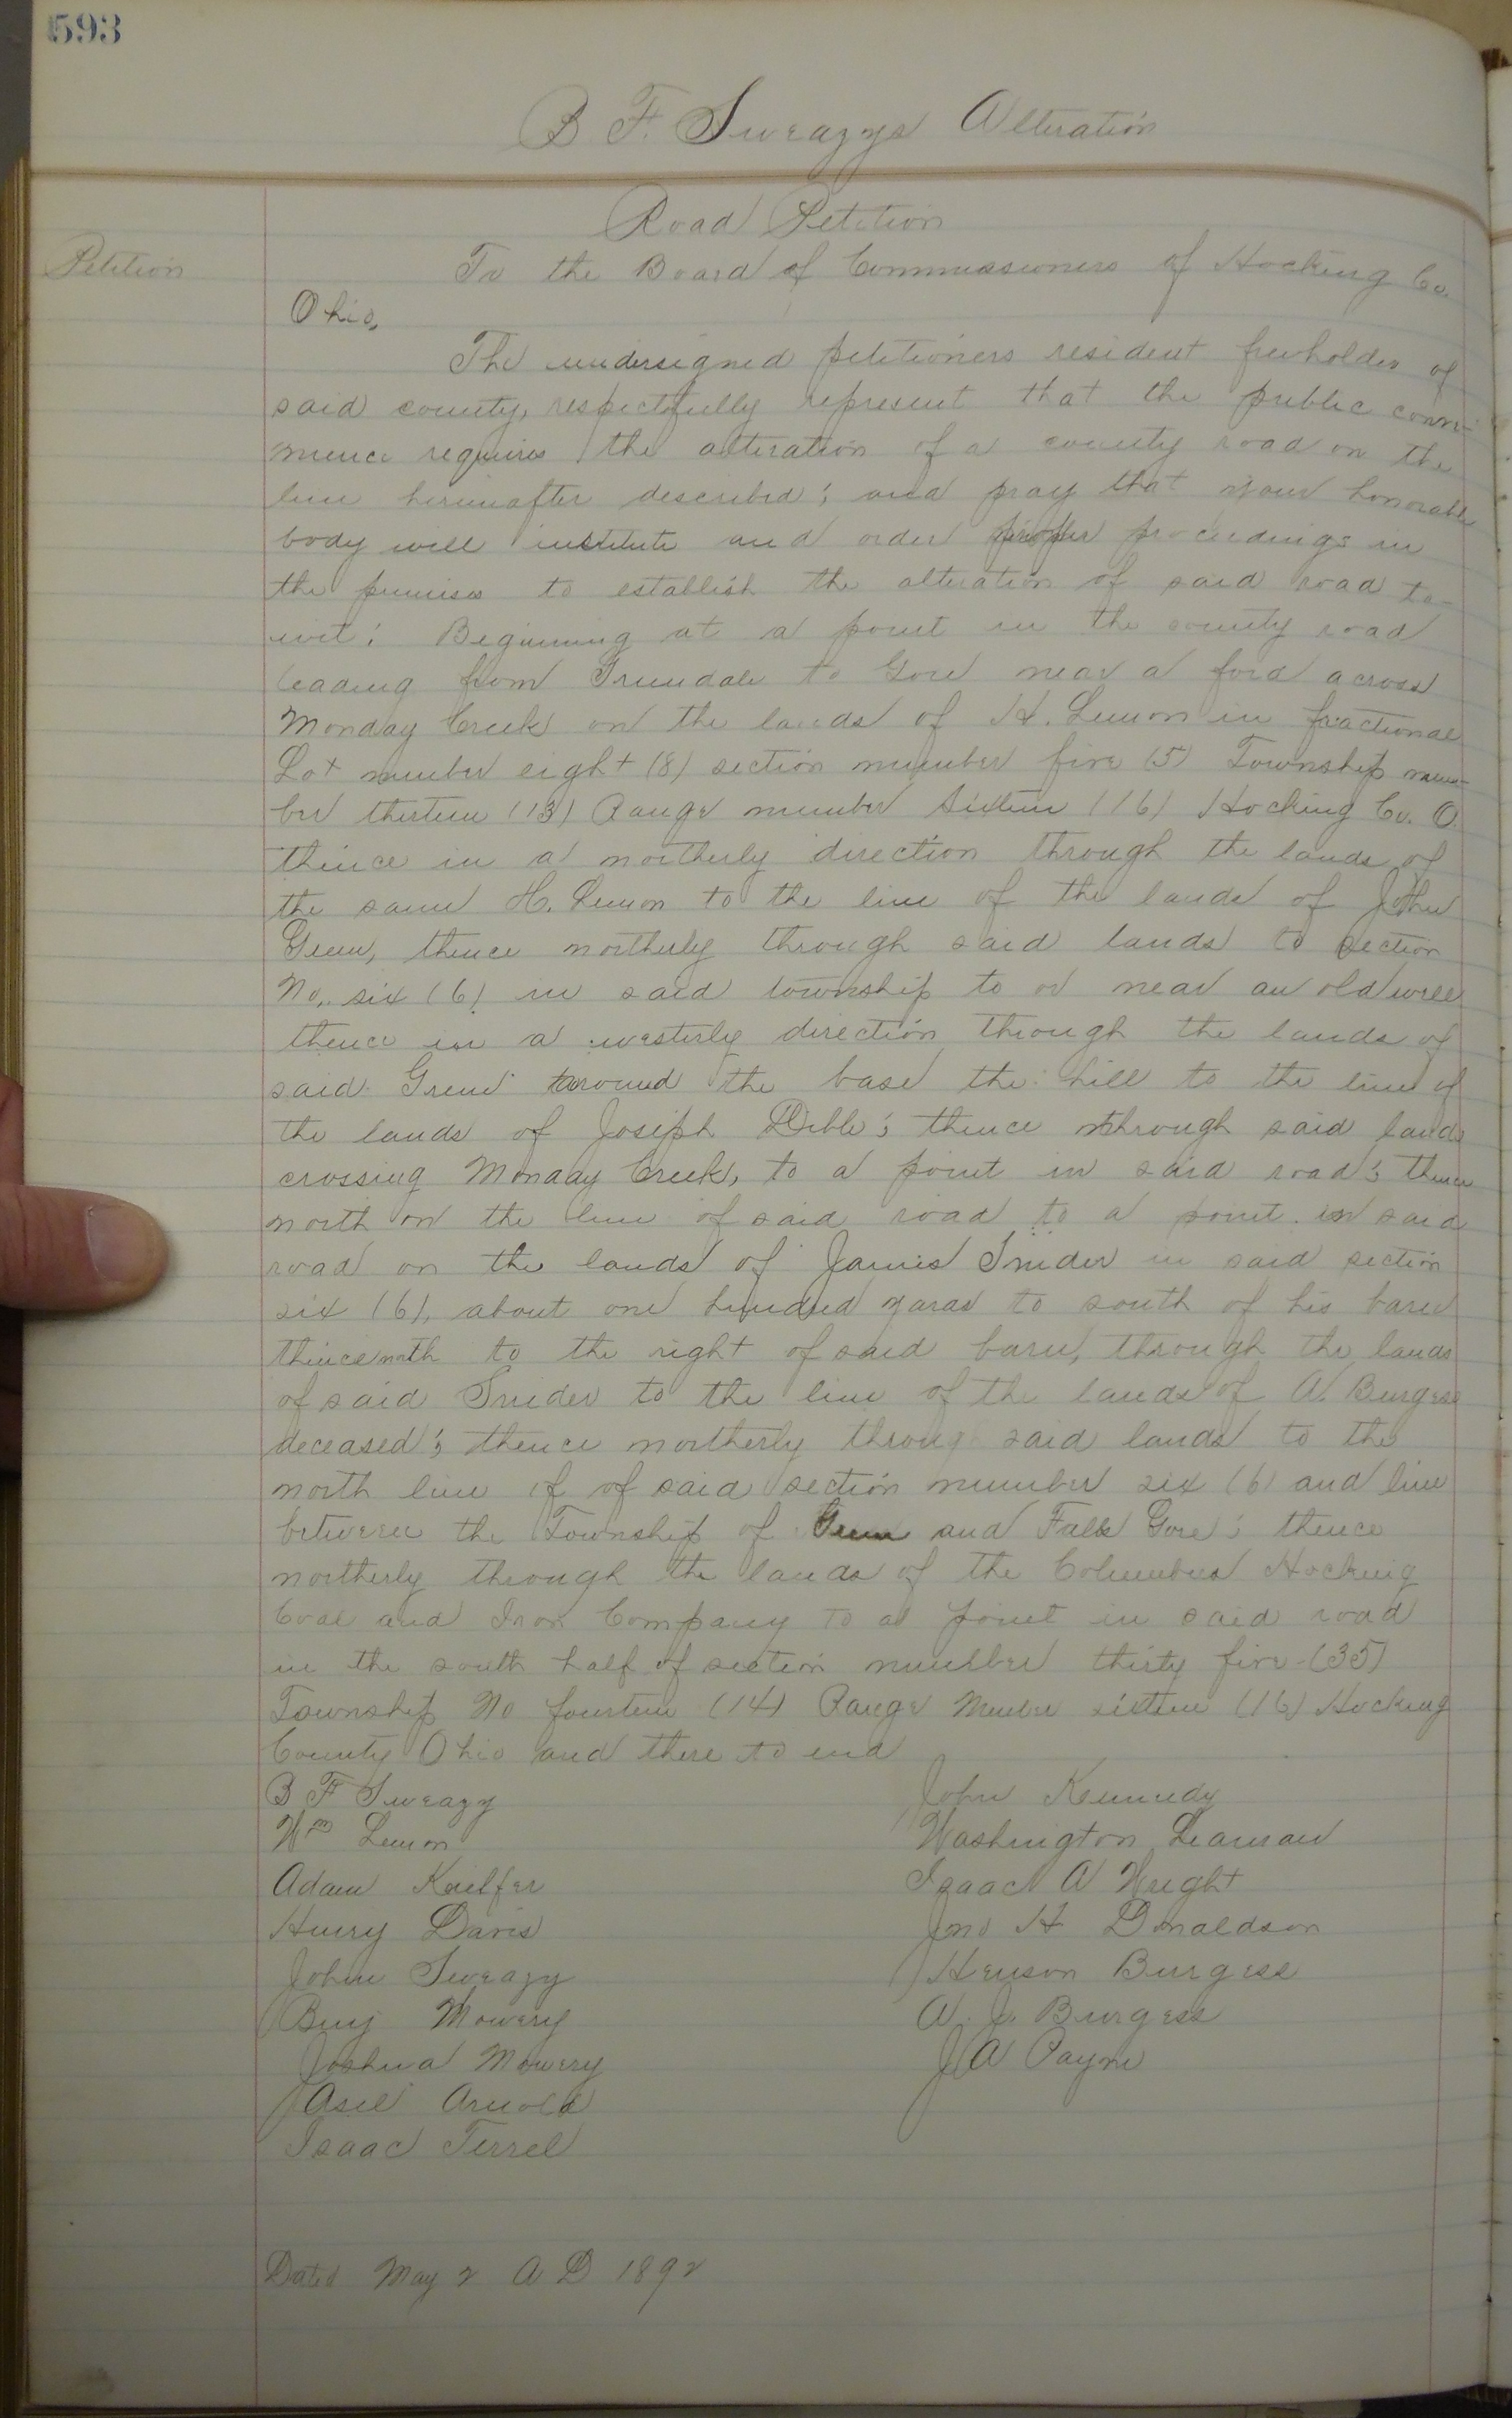 593
B. F. Sweazys Alteration
Road Petition
Petition
To the Board of Commissioners of Hocking Co.
Ohio,
The undersigned petitioners resident freeholder of
said county, respectfully represent that the public conve-
nience requires the alteration of a county road on the
line hereinafter described; and pray that your honorable
body will institute and order proper proceedings in
the premises to establish the alteration of said road to-
wit: Beginning at a point in the county road
leading from Greendale to Gore near a ford across
Monday Creek on the lands of H. Lemon in fractional
Lot number eight (8) section number five (5) Township num-
ber thirteen (13) Range number Sixteen (16) Hocking Co. O.
thence in a northerly direction through the lands of
the same H. Lemon to the line of the lands of
Green, thence northerly through said lands to section
No. six (6) in said township to or near an old well
thence in a westerly direction through the lands of
said Green around the base the hill to the line of
the lands of Joseph Dible; thence through said lands
crossing Monday Creek, to a point in said road; thence
north on the line of said road to a point in said
road on the lands of James Snider in said section
six (6), about one hundred yards to south of his barn
thence north to the right of said barn, through the lands
of said Snider to the line of the lands of A. Burgess
deceased; thence northerly throug said lands to the
north line of of said section number six (6) and line
between the Township of Green and Falls Gore; thence
northerly through the lands of the Columbus Hocking
Coal and Iron Company to a point in said road
in the south half of section number thirty five (35)
Township No fourteen (14) Range Number sixteen (16) Hocking
County Ohio and there to end
B F Sweazy
John Kennedy
Wm Lemon
Washington Leaman
Adam Keilfer
Isaac A Wright
Henry Davis
Jno H Donaldson
John Sweazy
Henson Burgess
Benj Mowery
A. J. Burgess
Joshua Mowery
J A Payne
Asel Arnold
Isaac Terrel
Dated May 2 A D 1892